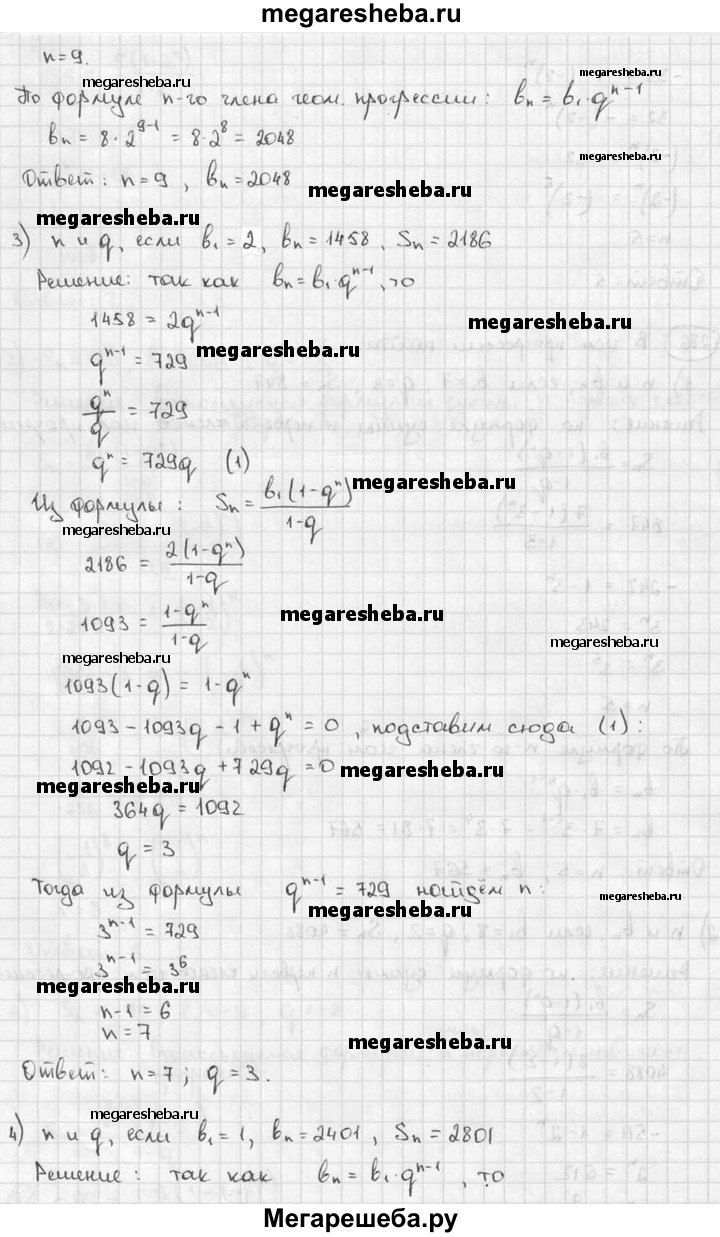 megaresheba.ru
n=9.
megaresheba.ru
По формуле n-го члена геом. прогрессии: bₙ = b₁·qⁿ⁻¹
bₙ = 8·2⁹⁻¹ = 8·2⁸ = 2048
megaresheba.ru
Ответ: n=9, bₙ=2048
megaresheba.ru
megaresheba.ru
3) n и q, если b₁=2, bₙ=1458, Sₙ=2186
Решение: так как bₙ=b₁·qⁿ⁻¹, то
1458 = 2qⁿ⁻¹
megaresheba.ru
qⁿ⁻¹ = 729
megaresheba.ru
qⁿ/q = 729
qⁿ = 729q (1)
Из формулы: Sₙ = b₁(1-qⁿ)/1-q
megaresheba.ru
megaresheba.ru
2186 = 2(1-qⁿ)/1-q
1093 = 1-qⁿ/1-q
megaresheba.ru
megaresheba.ru
megaresheba.ru
1093(1-q) = 1-qⁿ
1093-1093q-1+qⁿ=0, подставим сюда (1):
1092-1093q+729q=0
megaresheba.ru
megaresheba.ru
364q=1092
q=3
Тогда из формулы qⁿ⁻¹=729 найдём n:
megaresheba.ru
megaresheba.ru
3ⁿ⁻¹=729
3ⁿ⁻¹=3⁶
megaresheba.ru
n-1=6
n=7
megaresheba.ru
Ответ: n=7; q=3.
megaresheba.ru
4) n и q, если b₁=1, bₙ=2401, Sₙ=2801
Решение: так как bₙ=b₁·qⁿ⁻¹, то
Мегарешеба.ру